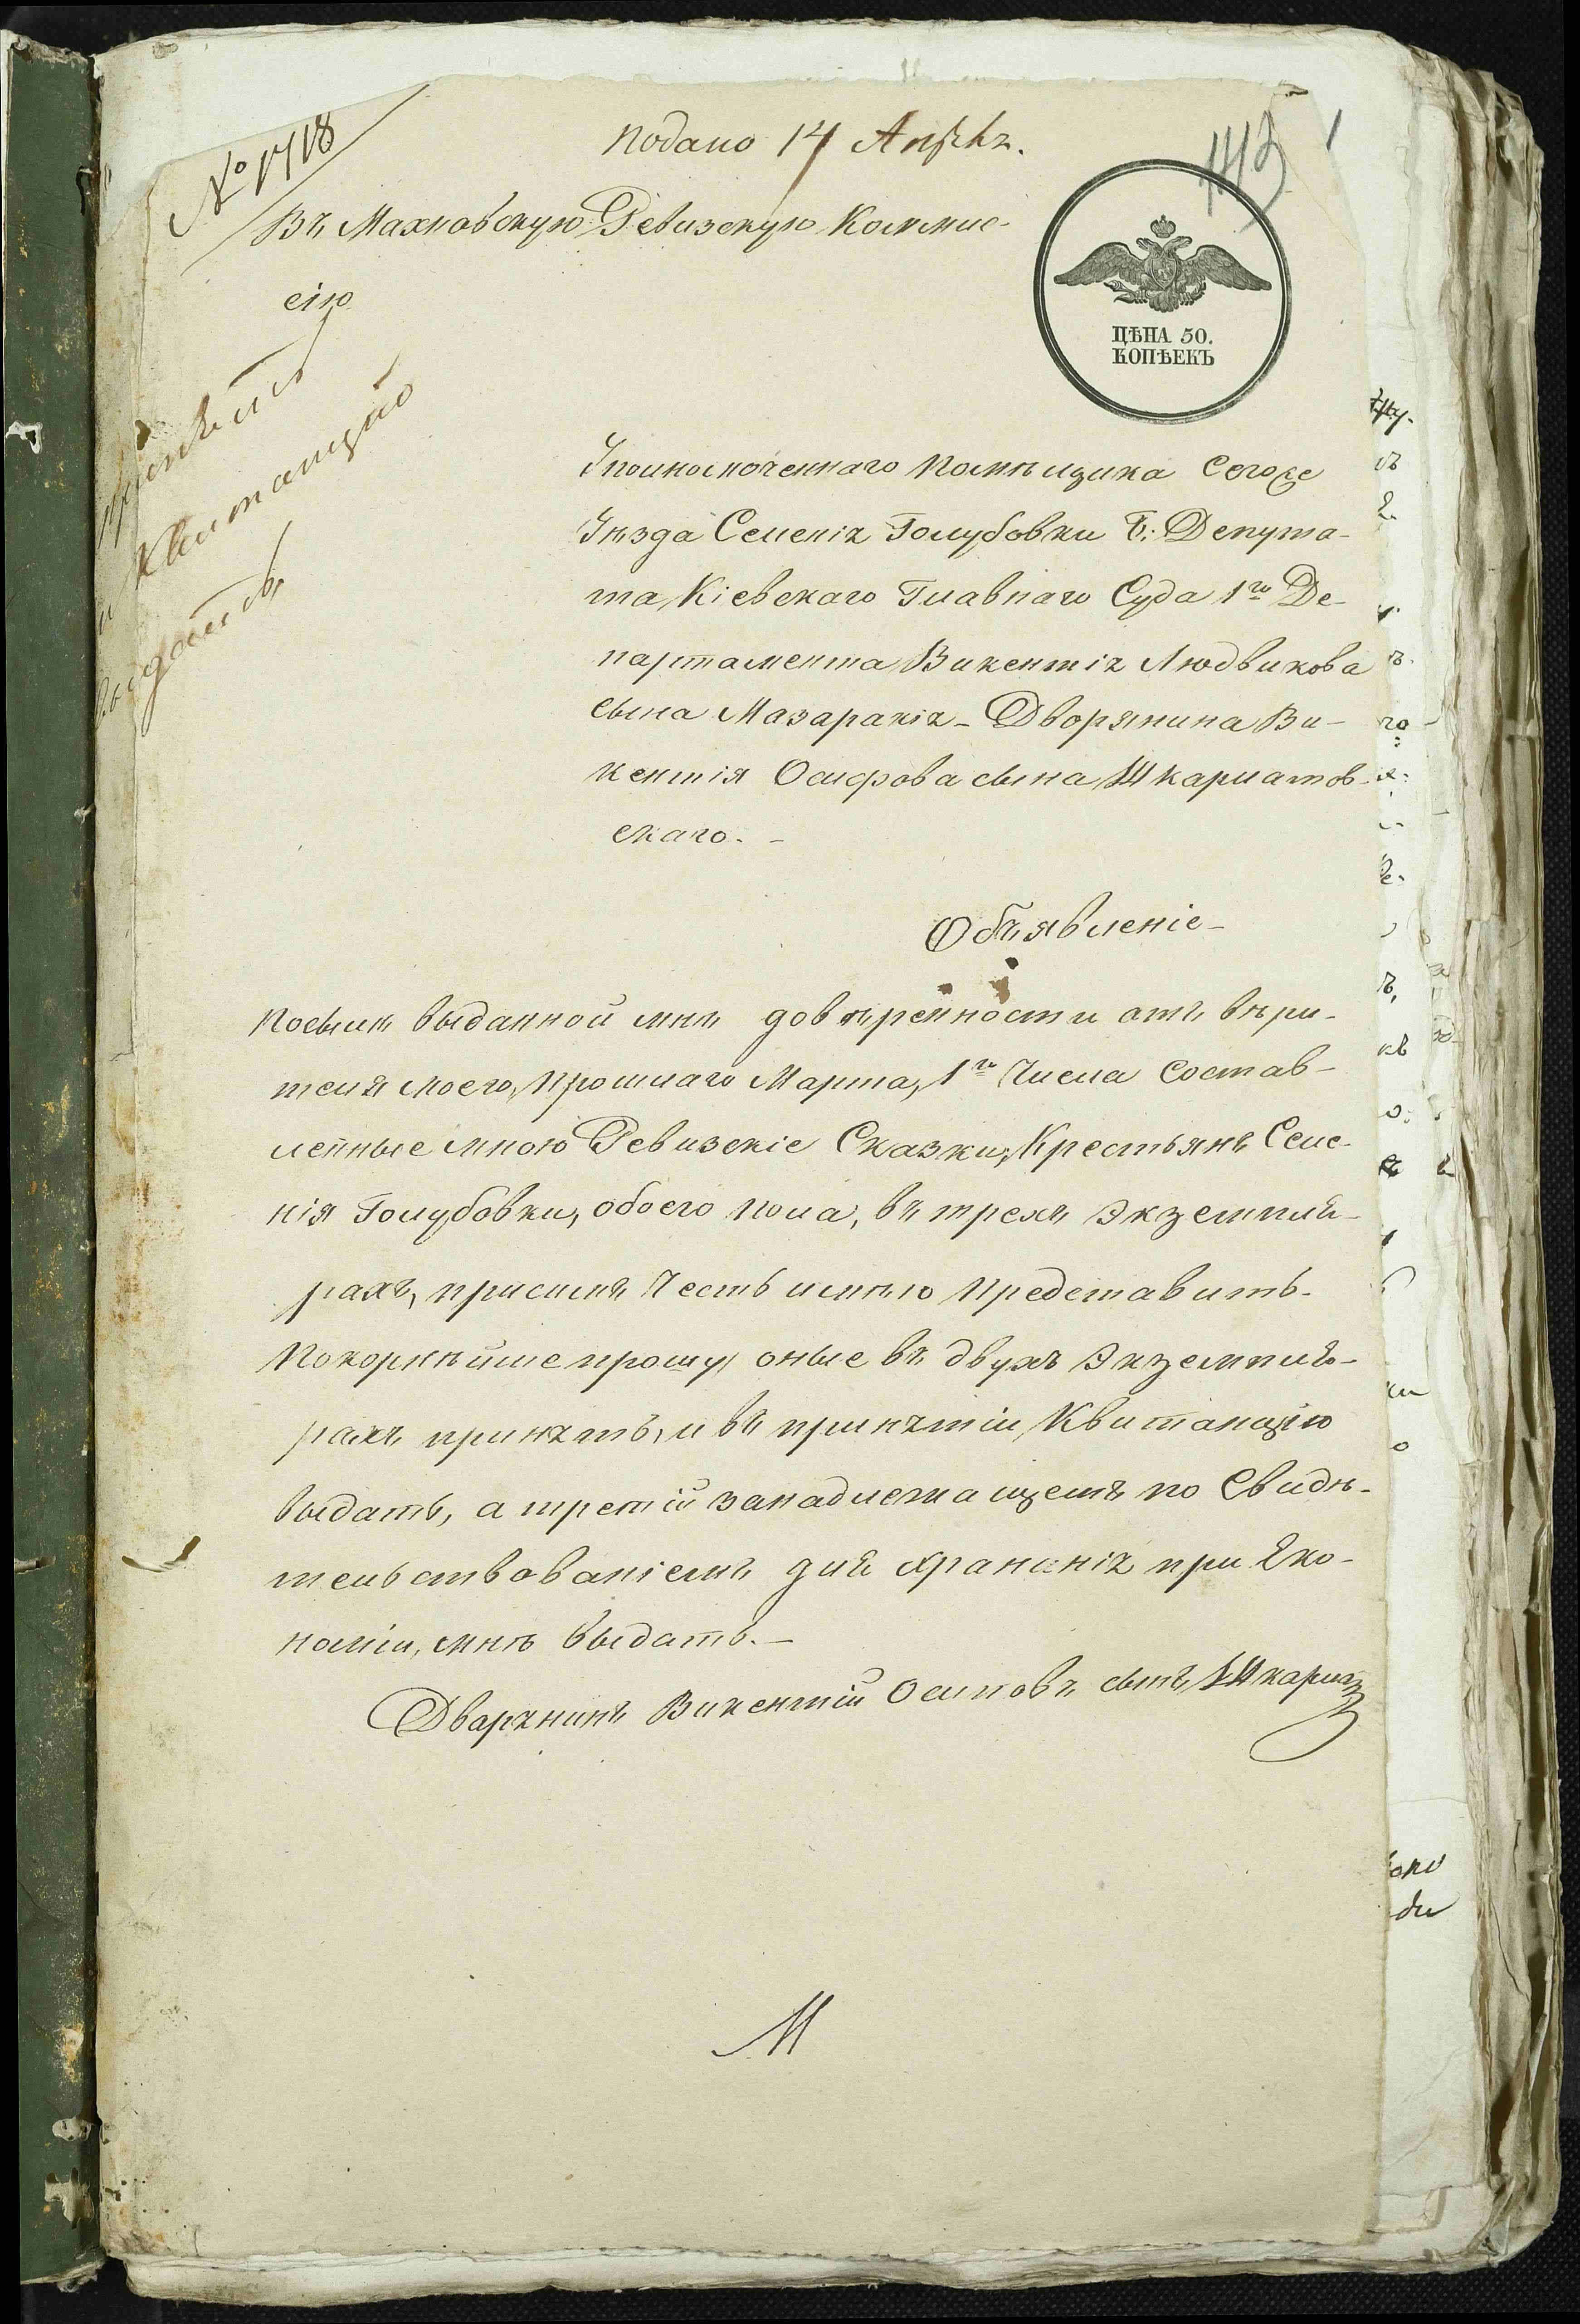 № 1718
подано 14 Апрѣля.
143
1
Въ Махновскую Ревизскую Коммис-
сію
ЦѢНА 50.
КОПѢЕКЪ
принять
и квитанцію
выдать
Уполномоченнаго помѣщика сегоже
Уѣзда Селенія Голубовки Б: Депута-
та Кіевскаго Главнаго Суда 1го Де-
партамента Викентія Людвикова
сына Мазаракія - Дворянина Ви-
кентія Осифова сына Шкарлатов-
скаго. -
Объявленіе -
Посылѣ выданной мнѣ довѣренности отъ вѣри-
теля моего, прошлаго Марта, 1го Числа Состав-
ленные мною Ревизскіе Сказки, Крестьянъ Селе-
нія Голубовки, обоего пола, въ трехъ Экземпля-
рахъ, присемъ Честь имѣю представить.
Покорнѣйше прошу оные въ двухъ Экземпля-
рахъ принять, и въ принятіи Квитанцію
выдать, а третій занадлежащемъ по Свидѣ-
тельствованіемъ для храненія при Эко-
номіи, мнѣ выдать. -
Дварянинъ Викентій Осиповъ сынъ
М